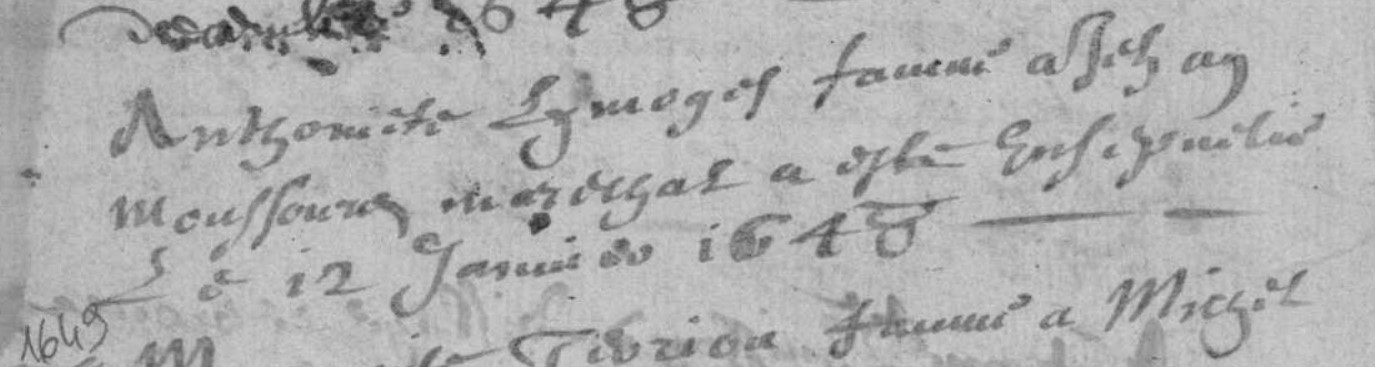 1648
Anthoniete Lymoges famme a Jehan
Moussour marechal a esté Ensepvelie
Le 12 Janvier 1648
1649
famme a Michel